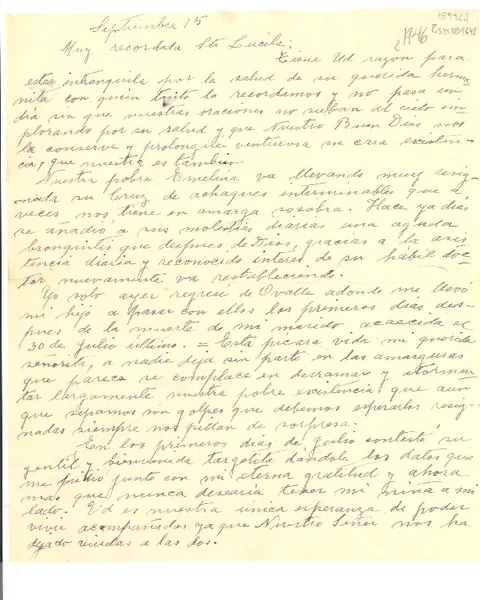 Septiembre 15
¿1946
Muy recordada Sta Lucila:
Tiene Ud razón para
estar intranquila por la salud de su querida herma
nita con quién tanto la recordamos y no pasa un
día sin que nuestras oraciones no suban al cielo im
plorando por su salud y que Nuestro Buen Dios nos
la conserve y prolongue venturosa su cara existen
cia, que nuestra es también.
Nuestra pobre Emelina va llevando muy resig
nada su Cruz de achaques interminables que a
veces nos tiene en amarga sosobra. Hace ya días
se añadio a sus molestias diarias una aguda
bronquitis que despues de Dios, gracias a la asis
tencia diaria y reconocido interes de su hábil doc
tor nuevamente va restableciendo.
Yo solo ayer regresé de Ovalle adonde me llevó
mi hijo a pasar con ellos los primeros dias des
pues de la muerte de mi marido acaecida el
30 de julio último. = Esta pícara vida mi querida
señorita, a nadie deja sin parte en las amarguras
que parece se complace en derramar y atormen
tar largamente nuestra pobre existencia que aun
que sepamos son golpes que debemos esperarlos resig
nadas siempre nos pillan de sorpresa.
En los primeros dias de julio contesté su
gentil y bienvenida targetita dándole los datos que
me pidió junto con mi eterna gratitud y ahora
mas que nunca desearia tener mi niña a mi
lado. Ud es nuestra unica esperanza de poder
vivir acompañadas ya que Nuestro Señor nos ha
dejado viudas a las dos.